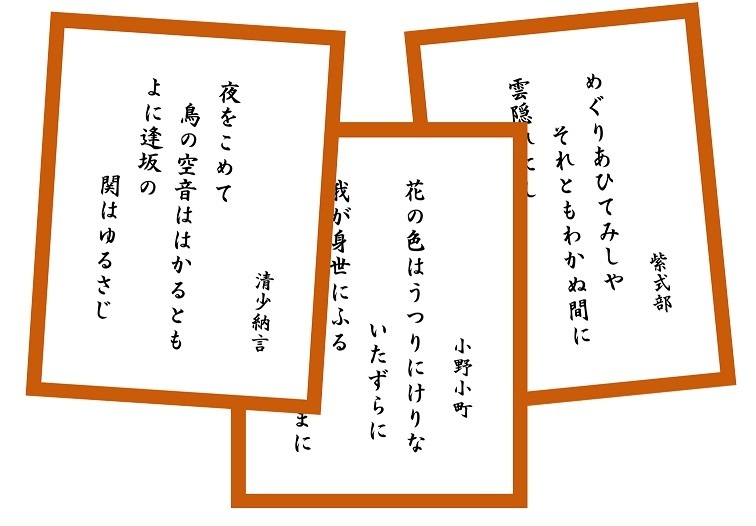 紫式部
めぐりあひてみしや
それともわかぬ間に
雲隠
小野小町
花の色はうつりにけりな
いたずらに
我が身世にふる
まに
清少納言
夜をこめて
鳥の空音ははかるとも
よに逢坂の
関はゆるさじ